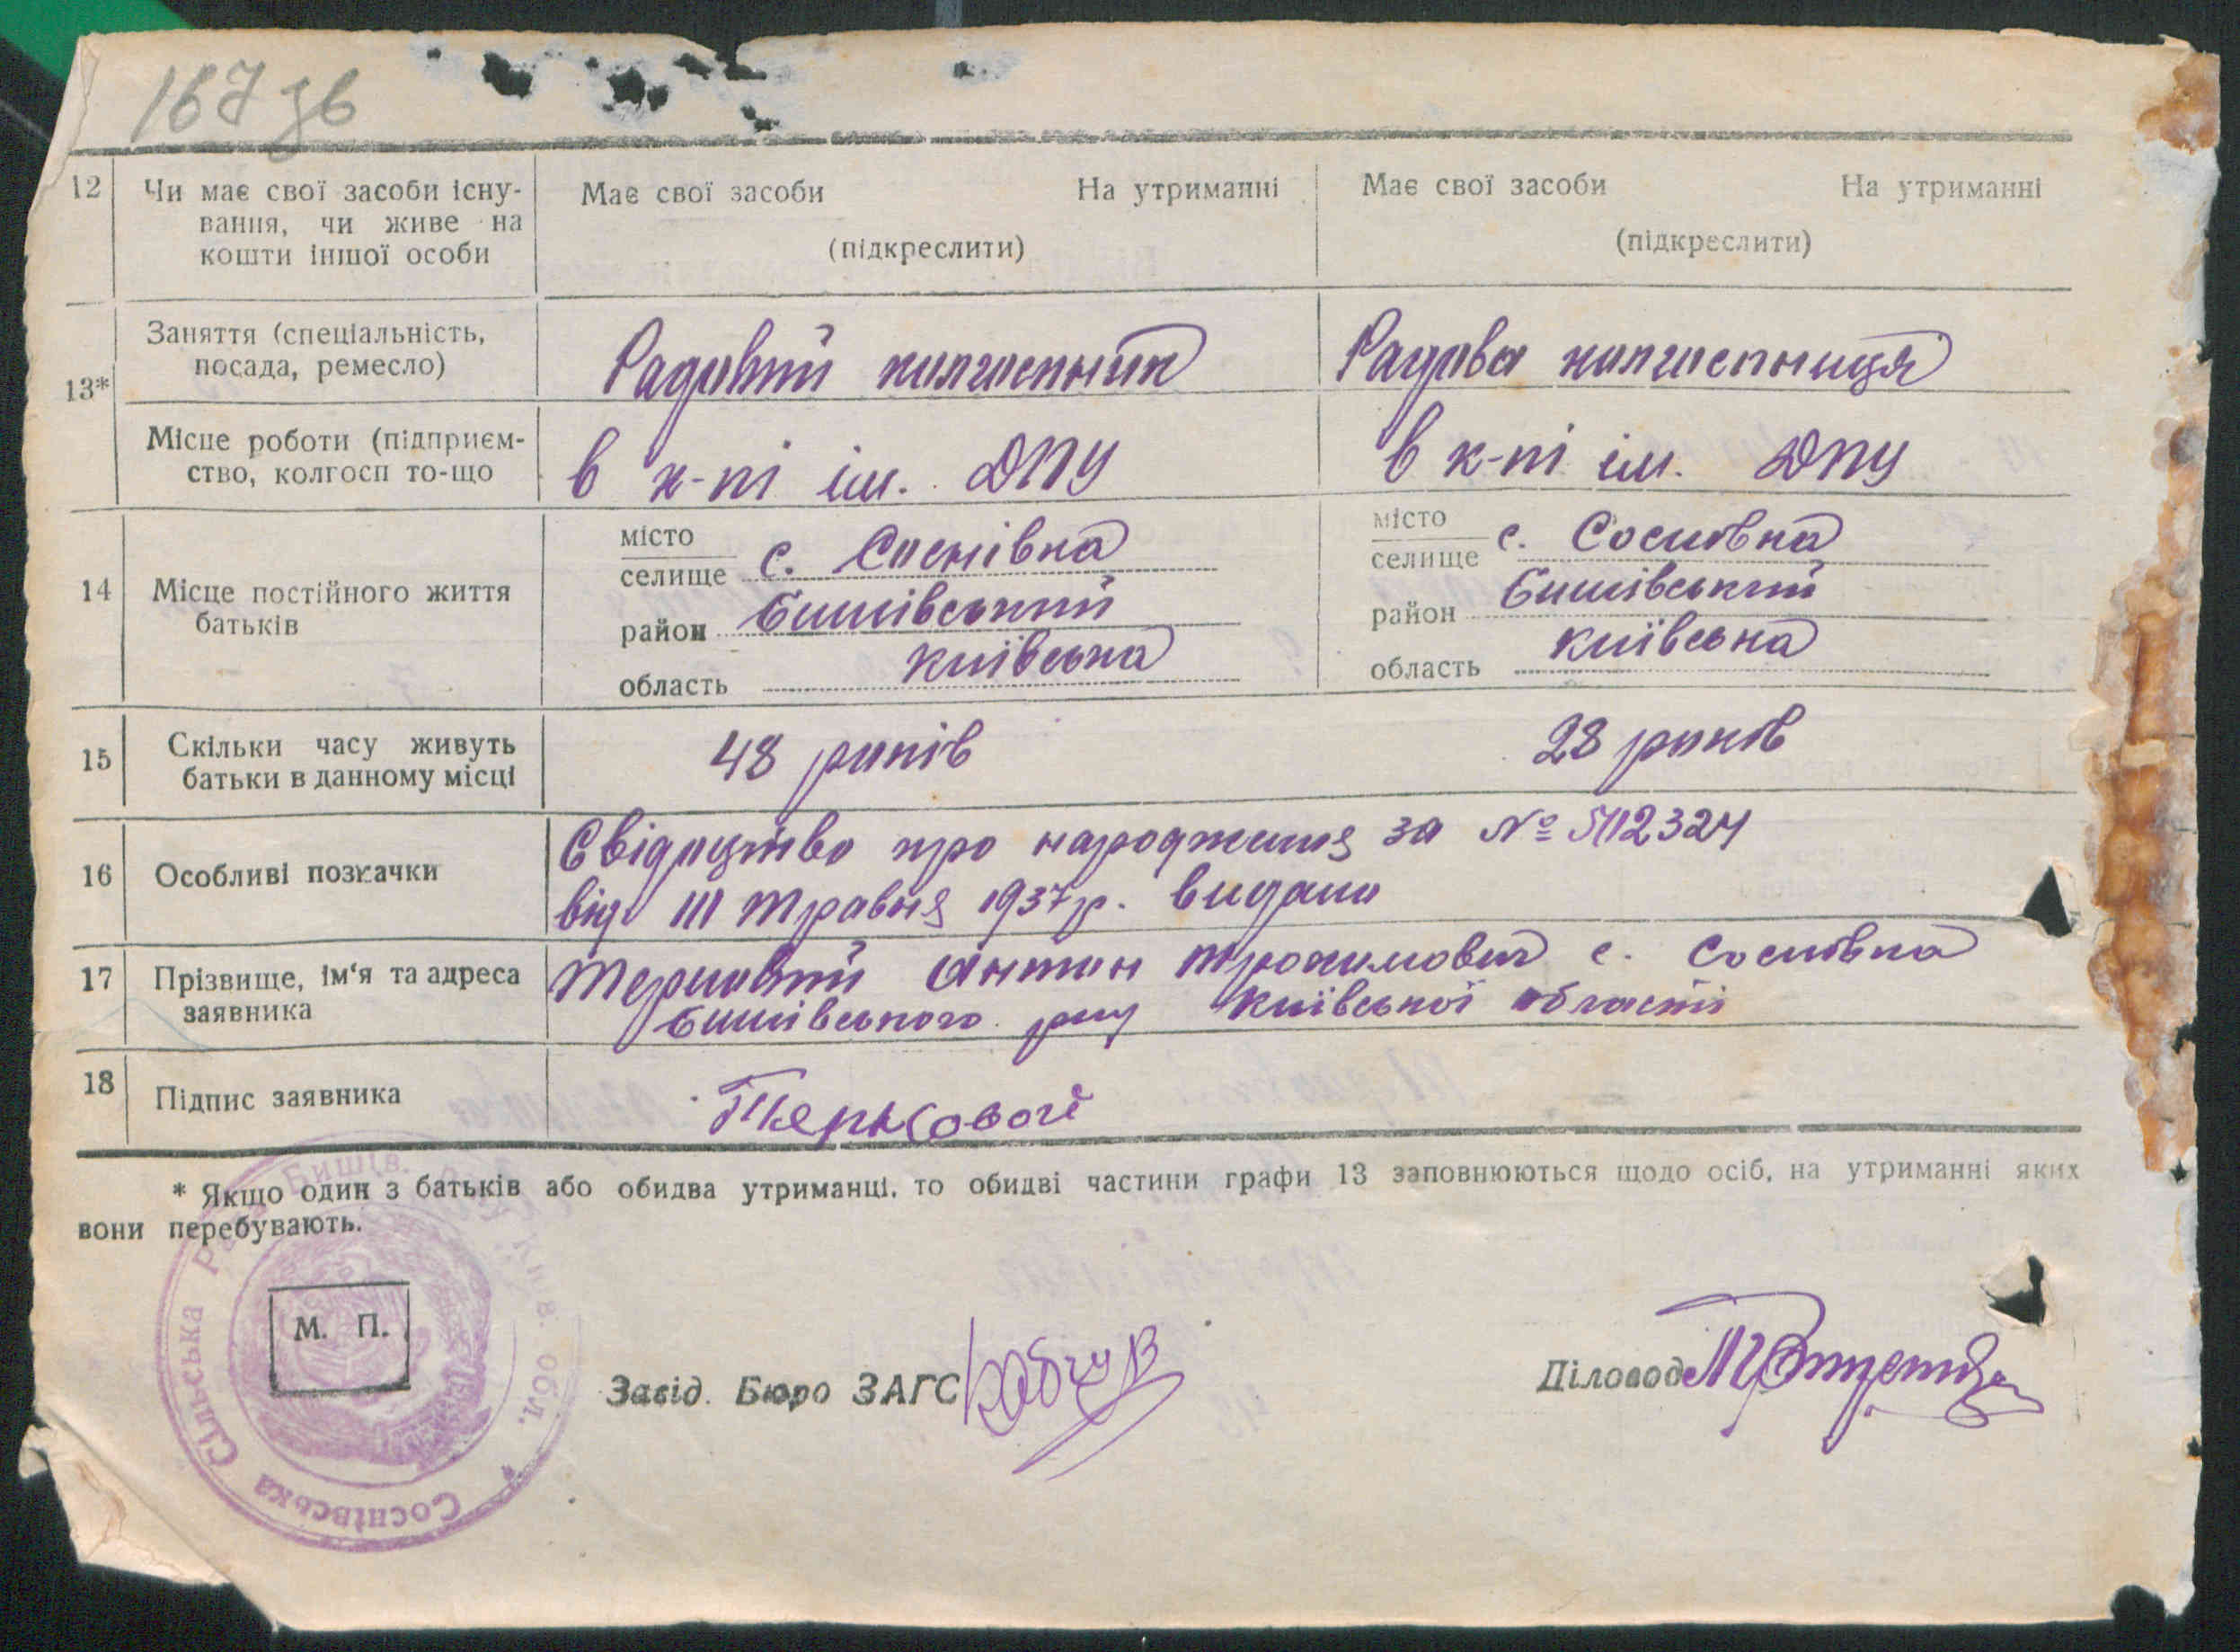 167 зв
12 Чи має свої засоби існу- Має свої засоби На утриманні Має свої засоби На утриманні
вання, чи живе на (підкреслити) (підкреслити)
кошти іншої особи
13* Заняття (спеціальність, Радовий колгоспник Радова колгоспниця
посада, ремесло)
Місце роботи (підприєм- в к-пі ім. ДПУ в к-пі ім. ДПУ
ство, колгосп то-що
14 Місце постійного життя місто селище с. Соснівка місто селище с. Соснівка
батьків район Бишівський район Бишівський
область Київська область Київська
15 Скільки часу живуть 48 років 28 років
батьки в данному місці
16 Особливі позначки Свідоцтво про народження за № 5112324
від III травня 1937р. видано
17 Прізвище, ім'я та адреса Терновий Антон Трохимович с. Соснівка
заявника Бишівського р-ну Київської області
18 Підпис заявника
* Якщо один з батьків або обидва утриманці, то обидві частини графи 13 заповнюються щодо осіб, на утриманні яких
вони перебувають.
Соснівська Сільська Рада Бишів. Київ. обл.
М. П.
Завід. Бюро ЗАГС Діловод